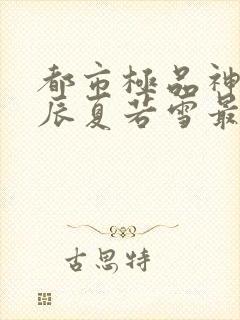 都市極品神
辰夏若雪最
古思特